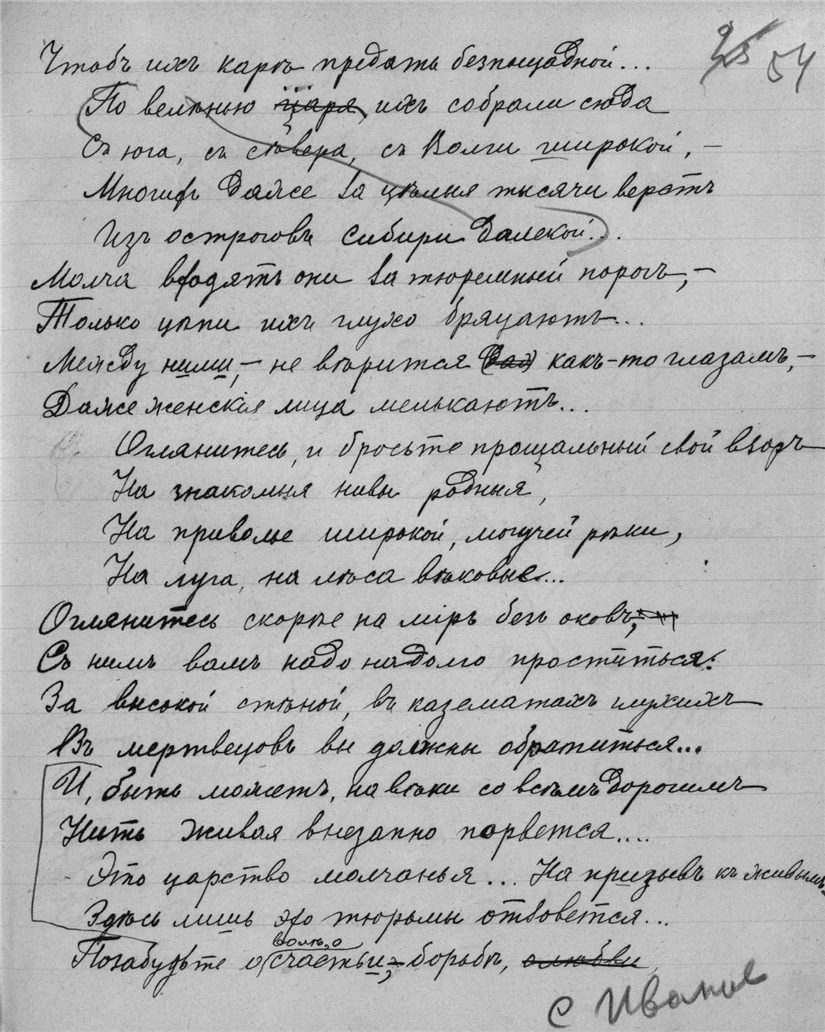 54
Чтобъ ихъ карѣ предать безпощадной...
По велѣнью царя, ихъ собрали сюда
Съ юга, съ сѣвера, съ Волги широкой, –
Многихъ даже за цѣлыя тысячи верстъ
Изъ остроговъ Сибири далекой...
Молча входятъ они за тюремный порогъ, –
Только цѣпи ихъ глухо бряцаютъ...
Между ними, – не вѣрится какъ-то глазамъ, –
Даже женскія лица мелькаютъ...
Оглянитесь, и бросьте прощальный свой взоръ
На знакомыя нивы родныя,
На приволье широкой, могучей рѣки,
На луга, на лѣса вѣковые...
Оглянитесь скорѣе на міръ безъ оковъ,
Съ нимъ вамъ надо надолго проститься:
За высокой стѣной, въ казематахъ глухихъ
Въ мертвецовъ вы должны обратиться...
И, быть можетъ, навѣки со всѣмъ дорогимъ
Нить живая внезапно порвется....
Это царство молчанья... На призывъ къ живымъ
Здѣсь лишь эхо тюрьмы отзовется...
волѣ, о
Позабудьте о счастьи, – борьбѣ, о любви
С Иванов